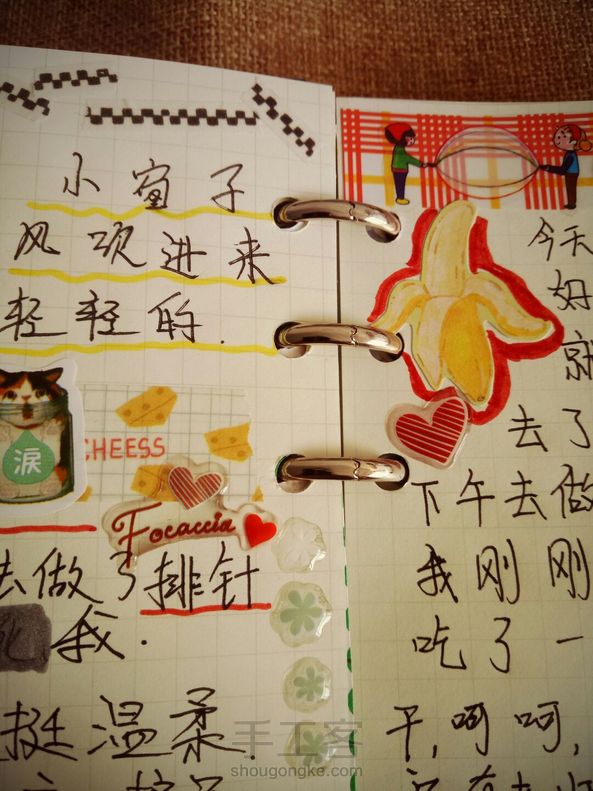 小窗子
风吹进来
轻轻的.
涙
CHEESS
Focaccia
去做了排针
我.
挺温柔.
今天
好
就
去了
下午去做
我刚刚
吃了一
干,呵呵,
手工客
shougongke.com